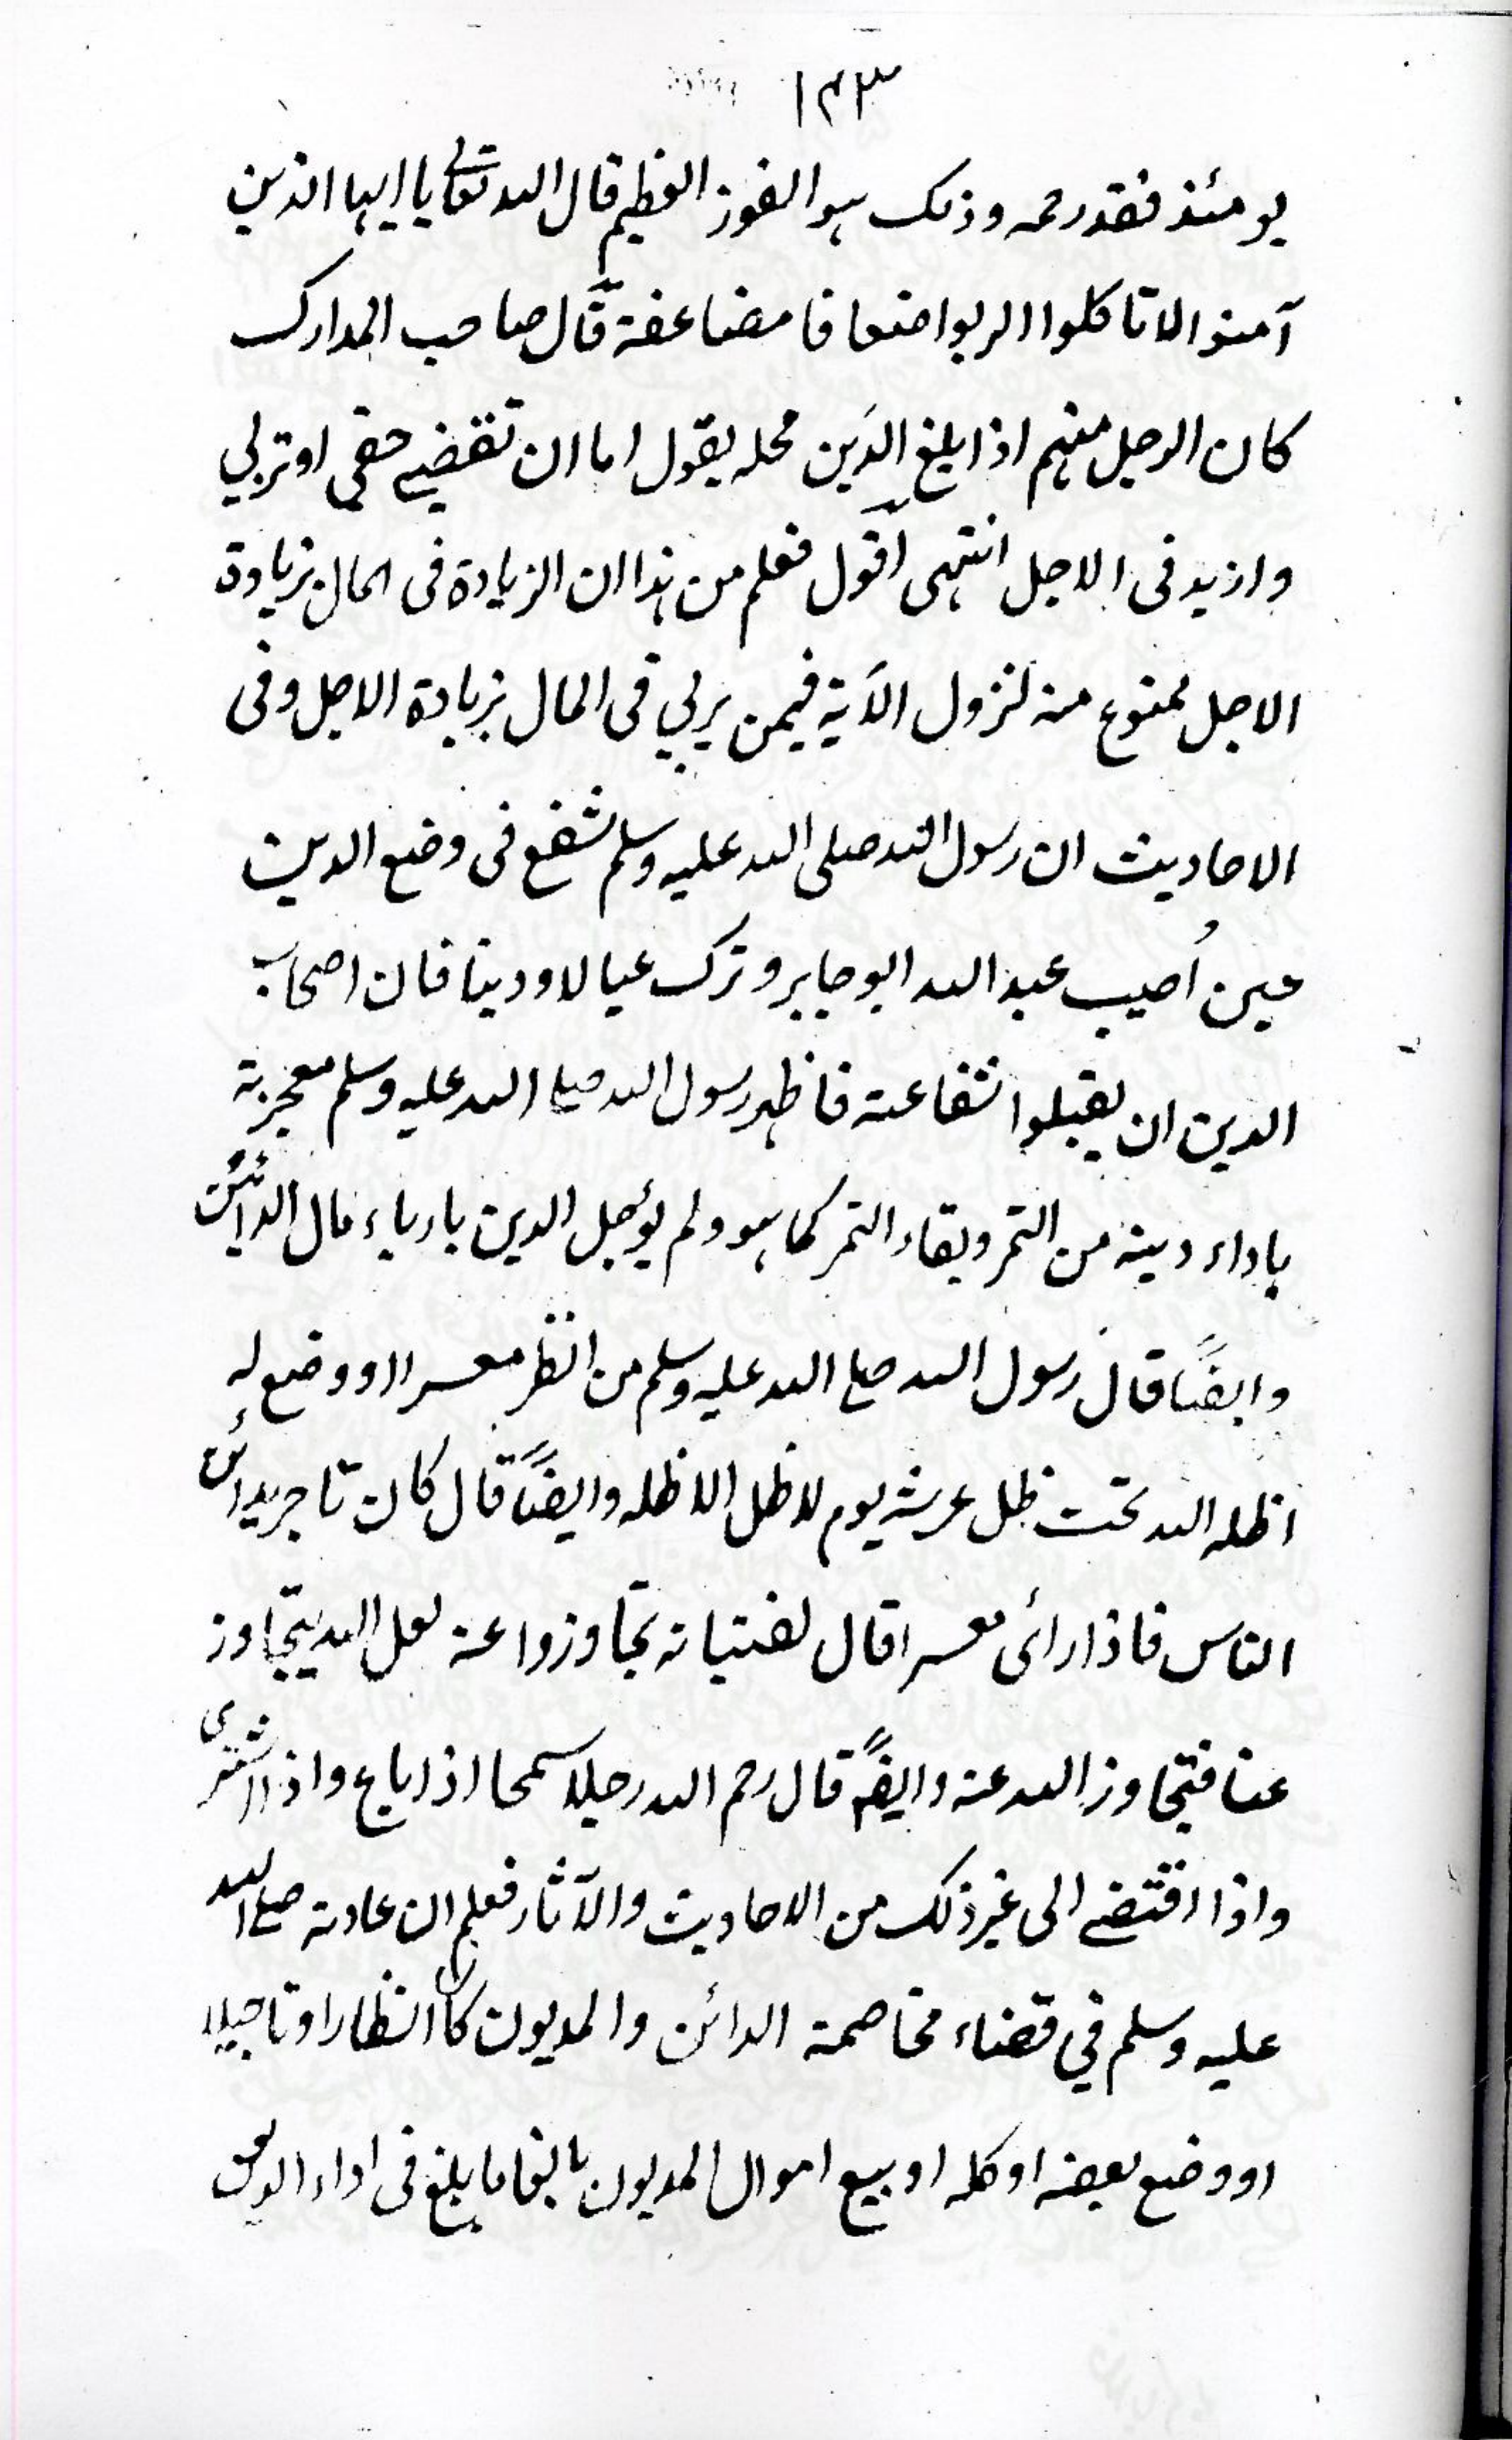 ١٤٣
يومئذ فقد رحمه وذلك هو الفوز العظيم قال الله تعالى يا ايها الذين
آمنوا لا تاكلوا الربوا اضعافا مضاعفة قال صاحب المدارك
كان الرجل منهم اذا بلغ الدَين محله يقول اما ان تقضي حقى او تربي
وازيد فى الاجل انتهى اقول فعلم من هذا ان الزيادة فى المال بزيادة
الاجل ممنوع منه لنزول الآية فيمن يربي فى المال بزيادة الاجل وفى
الاحاديث ان رسول الله صلى الله عليه وسلم شفع فى وضع الدين
حين اُصيب عبد الله ابو جابر وترك عيالا ودينا فان اصحاب
الدين ان يقبلوا شفاعته فاظهر رسول الله صلے الله عليه وسلم معجزته
باداء دينه من التمر وبقاء التمر كما هو ولم يؤجل الدين بارباء مال الدائن
وايضًا قال رسول الله صلے الله عليه وسلم من انظر معسرا او وضع له
اظله الله تحت ظل عرشه يوم لا ظل الا ظله وايضًا قال كان تاجر يدائن
الناس فاذا رائى معسرا قال لفتيانه تجاوزوا عنه لعل الله يتجاوز
عنا فتجاوز الله عنه وايضًا قال رحم الله رجلا سمحا اذا باع واذا اشترى
واذا اقتضے الى غير ذلك من الاحاديث والآثار فعلم ان عادته صلے الله
عليه وسلم في قضاء مخاصمة الدائن والمديون كان انظارا وتاجيلا
او وضع بعضه او كله او بيع اموال المديون بالغا ما بلغ فى اداء الدين